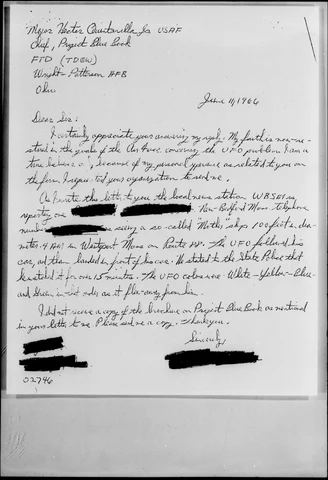 Major Hector Quintanilla, Jr USAF
Chief, Project Blue Book
FTD (TDEW)
Wright-Patterson AFB
Ohio
June 11, 1966
Dear Sir:
I certainly appreciate your answering my
in the of the Air Force covering the UFO problem. I am a
true believer because of my personal as related to you on
the form I requested your organization to send me.
As I write this letter to you the local news station WBSM is
reporting one New Bedford Mass telephone
number is seeing a so-called "Mother" ship 100 feet in dia-
meter 4 AM in Westport Mass on Route 88. The UFO followed his
car, and then landed in front of his car. He stated to the State Police that
he watched it for over 15 minutes. The UFO colors were White-Yellow-Blue
and Green in that order as it flew away from him.
I did not receive a copy of the brochure on Project Blue Book as mentioned
in your letter to me. Please send me a copy. Thank you.
Sincerely,
02746